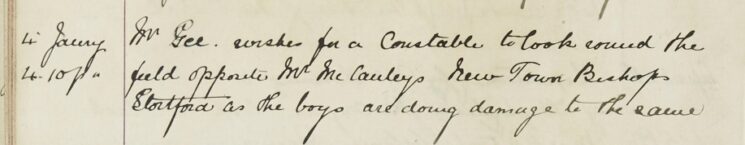 4 Janry Mr Gee. wishes for a Constable to look round the
4.10 pm field opposite Mr McCauleys New Town Bishops
Stortford as the boys are doing damage to the same